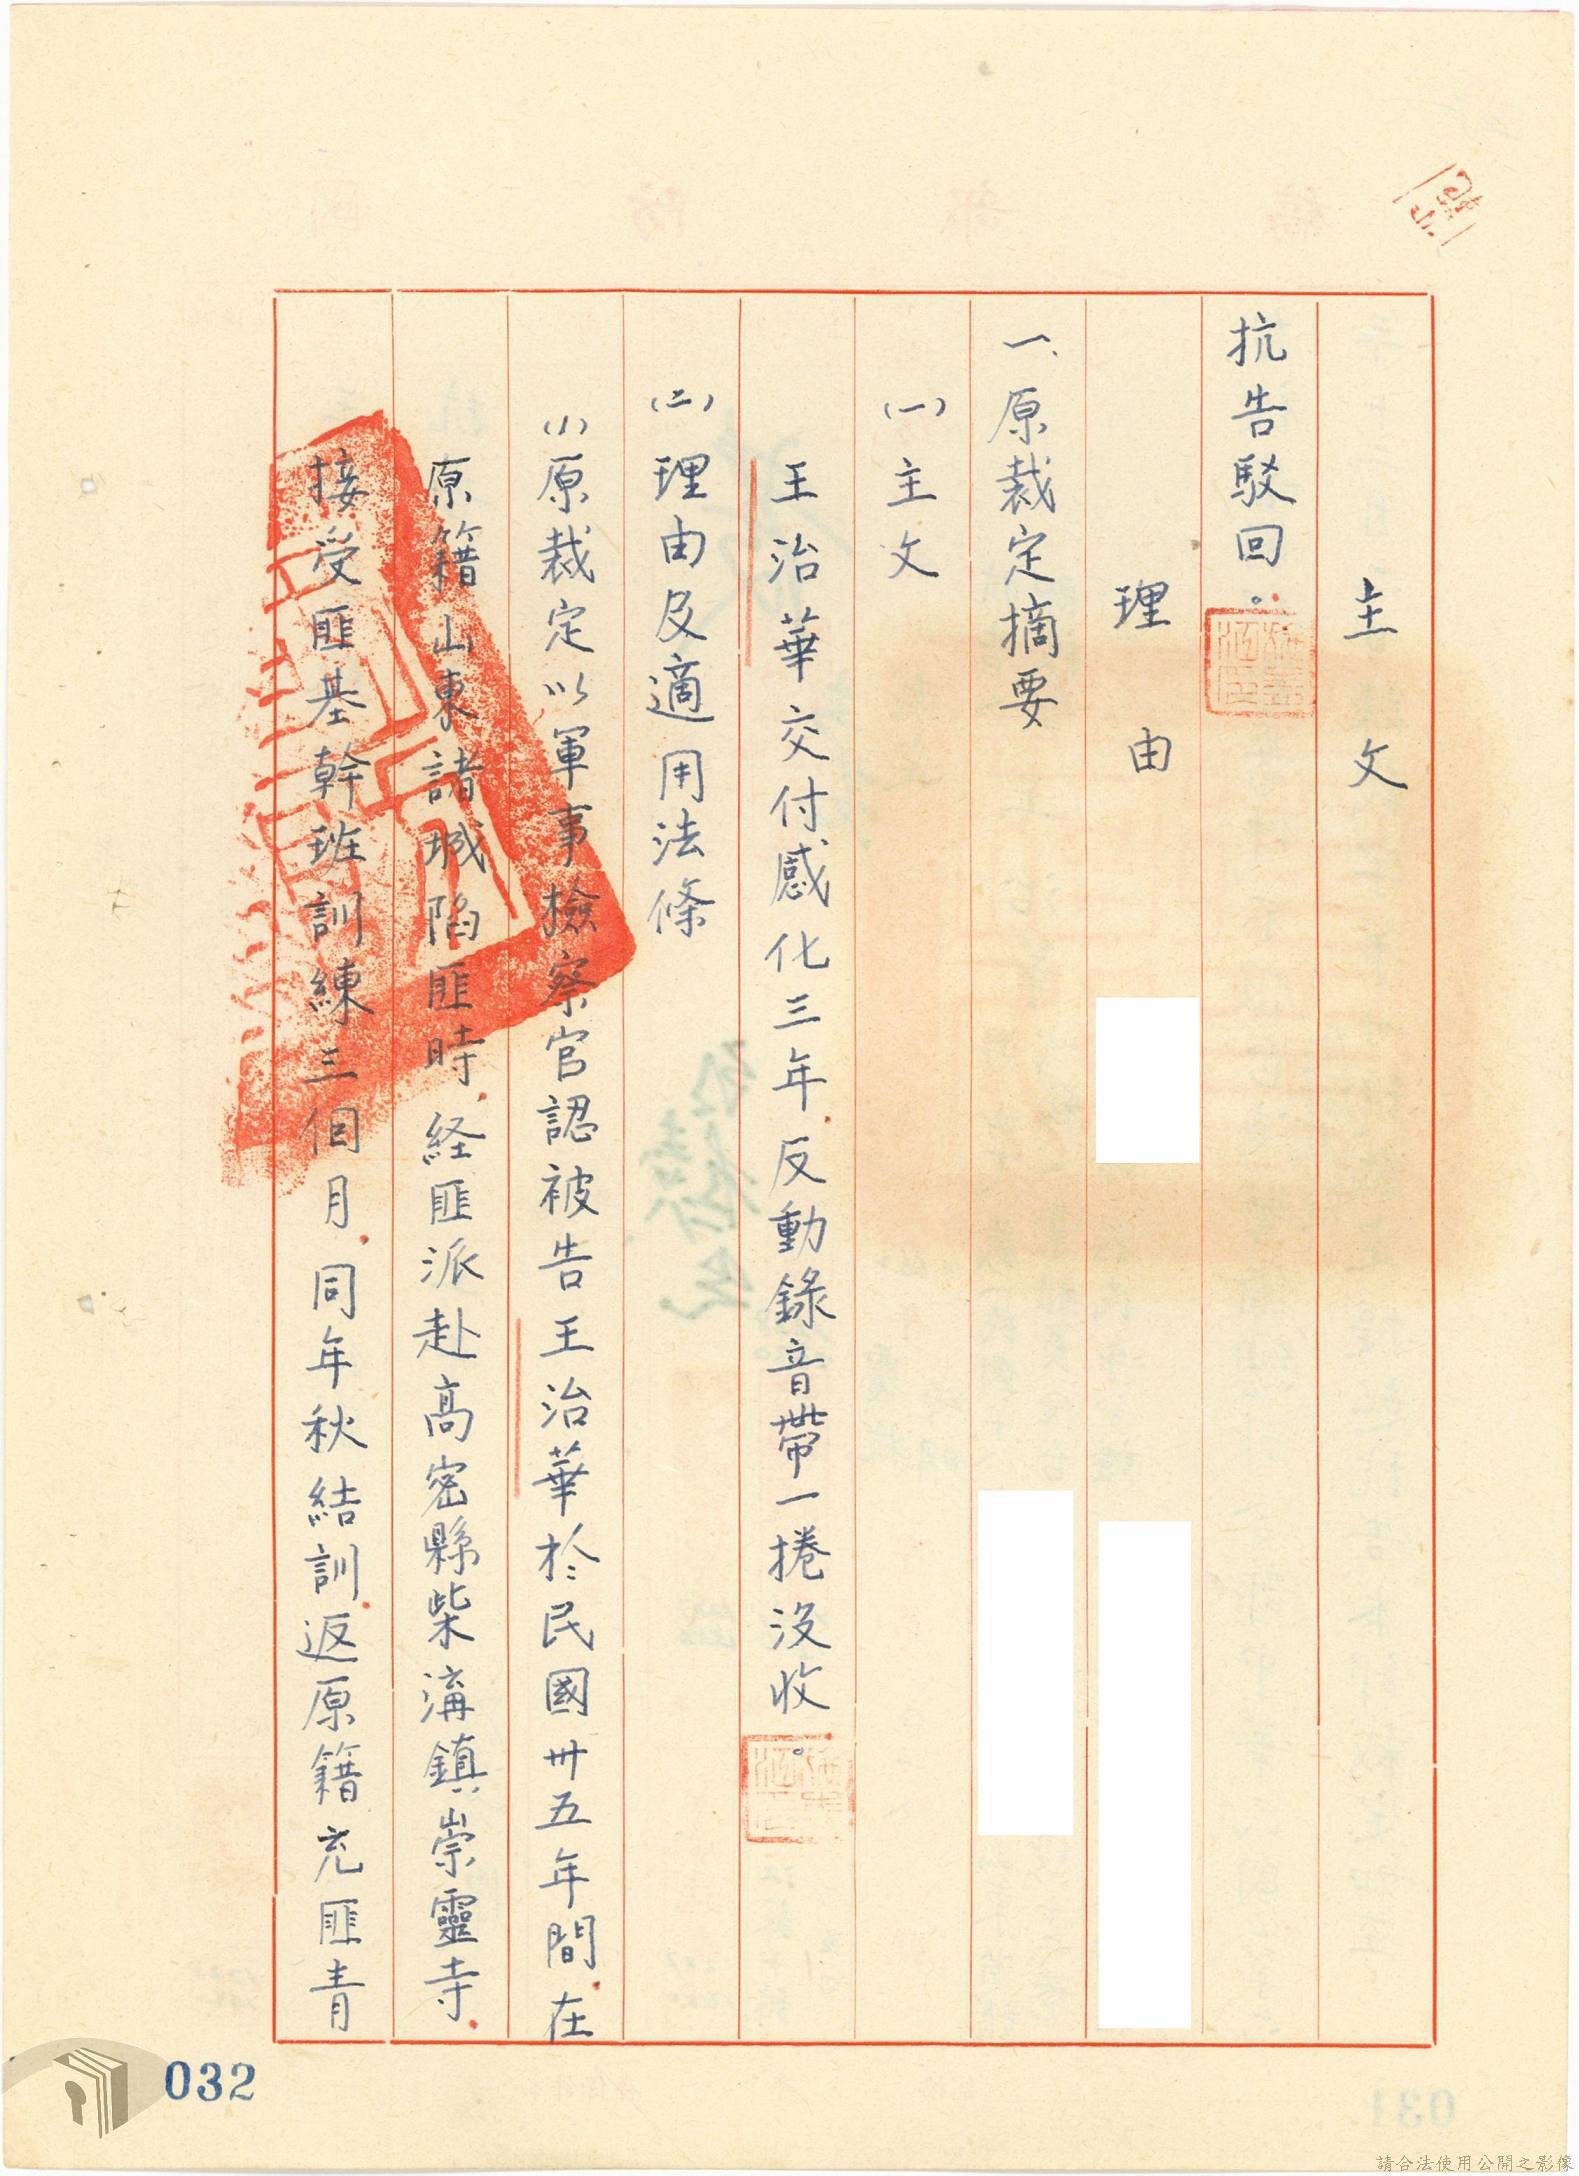 主文
抗告駁回。
理由
一、原裁定摘要
(一)主文
王治華交付感化三年反動錄音帶一捲沒收。
(二)理由及適用法條
(1)原裁定以軍事檢察官認被告王治華於民國卅五年間在
原籍山東諸城陷匪時、経匪派赴高密縣柴溝鎮崇靈寺
接受匪基幹班訓練三個月、同年秋結訓返原籍充匪青
032
請合法使用公開之影像